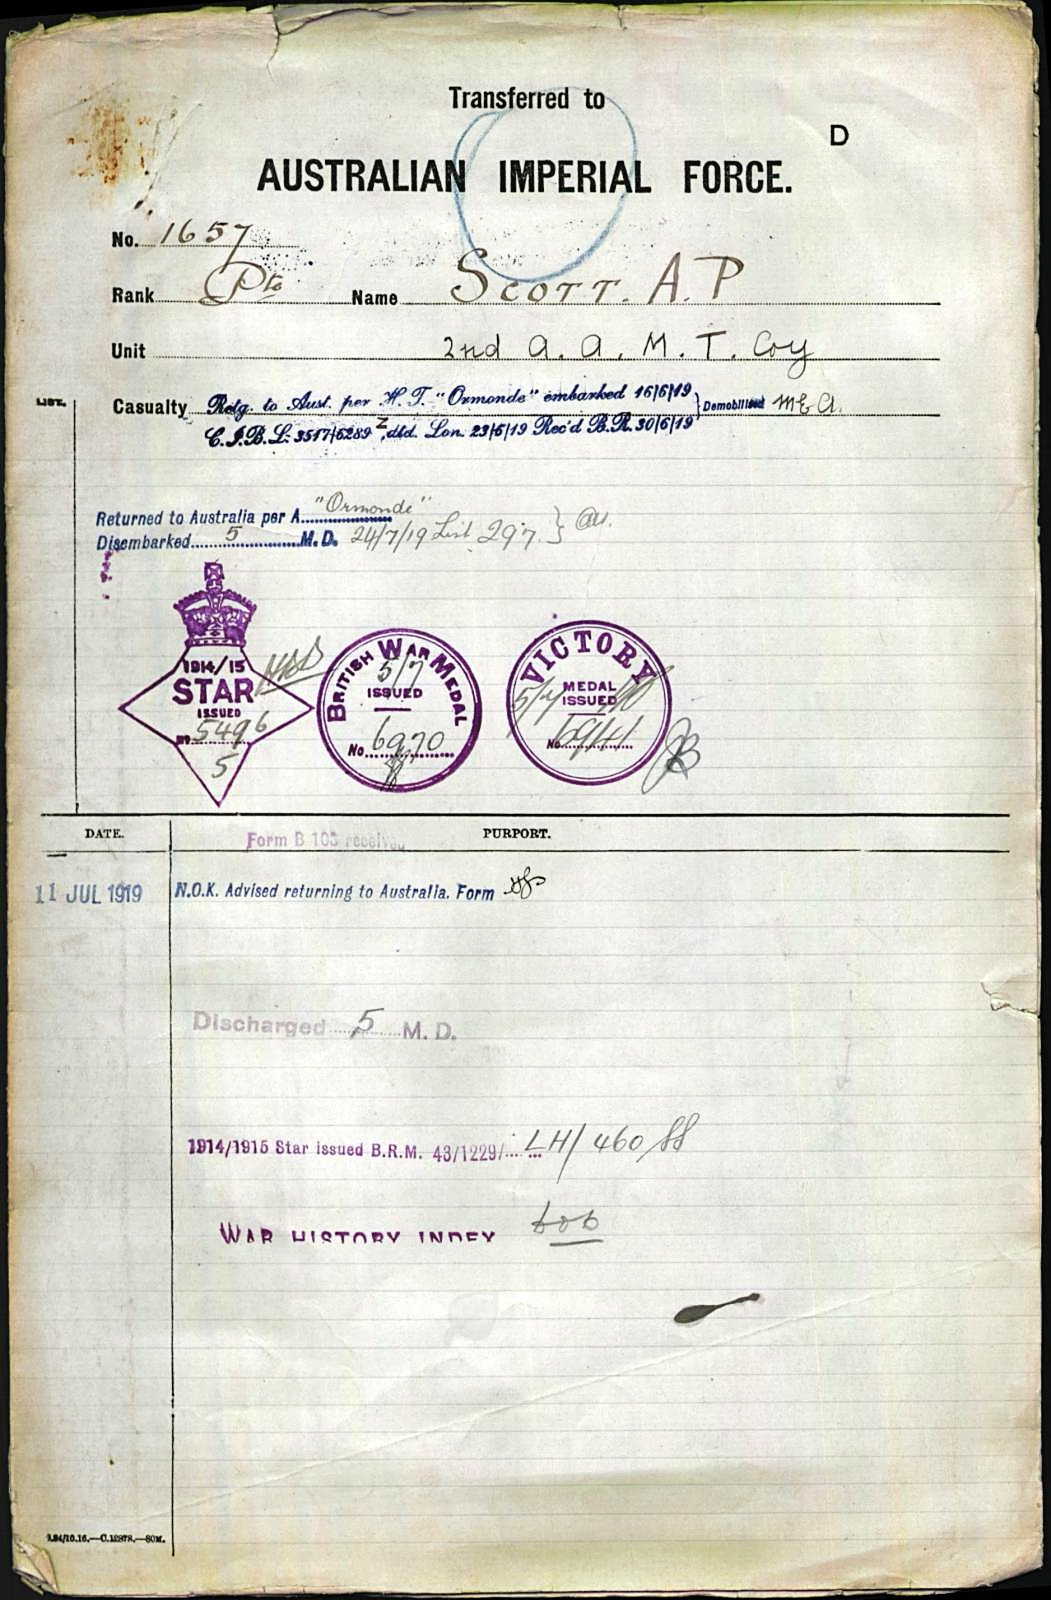 Transferred to
D
AUSTRALIAN IMPERIAL FORCE.
No. 1657
Rank Pte Name SCOTT. A. P
Unit 2nd A. A. M. T. Coy
LIST.
Casualty Retg. to Aust. per H. T. "Ormonde" embarked 16/6/19 } Demobilised M.E.A.
C.I.B.L. 3517/6289 Z, dtd. Lon. 23/6/19 Rec'd B.R. 30/6/19
Returned to Australia per A "Ormonde"
Disembarked 5 M.D. 24/7/19 List 297 }
1914/15
STAR
ISSUED
No 5496
5
BRITISH WAR MEDAL
5/7
ISSUED
No. 6970
VICTORY
MEDAL
ISSUED
5/7
No. 6941
DATE. PURPORT.
Form B 103 received
11 JUL 1919 N.O.K. Advised returning to Australia. Form
Discharged 5 M. D.
1914/1915 Star issued B.R.M. 43/1229/ LH/460
WAR HISTORY INDEX